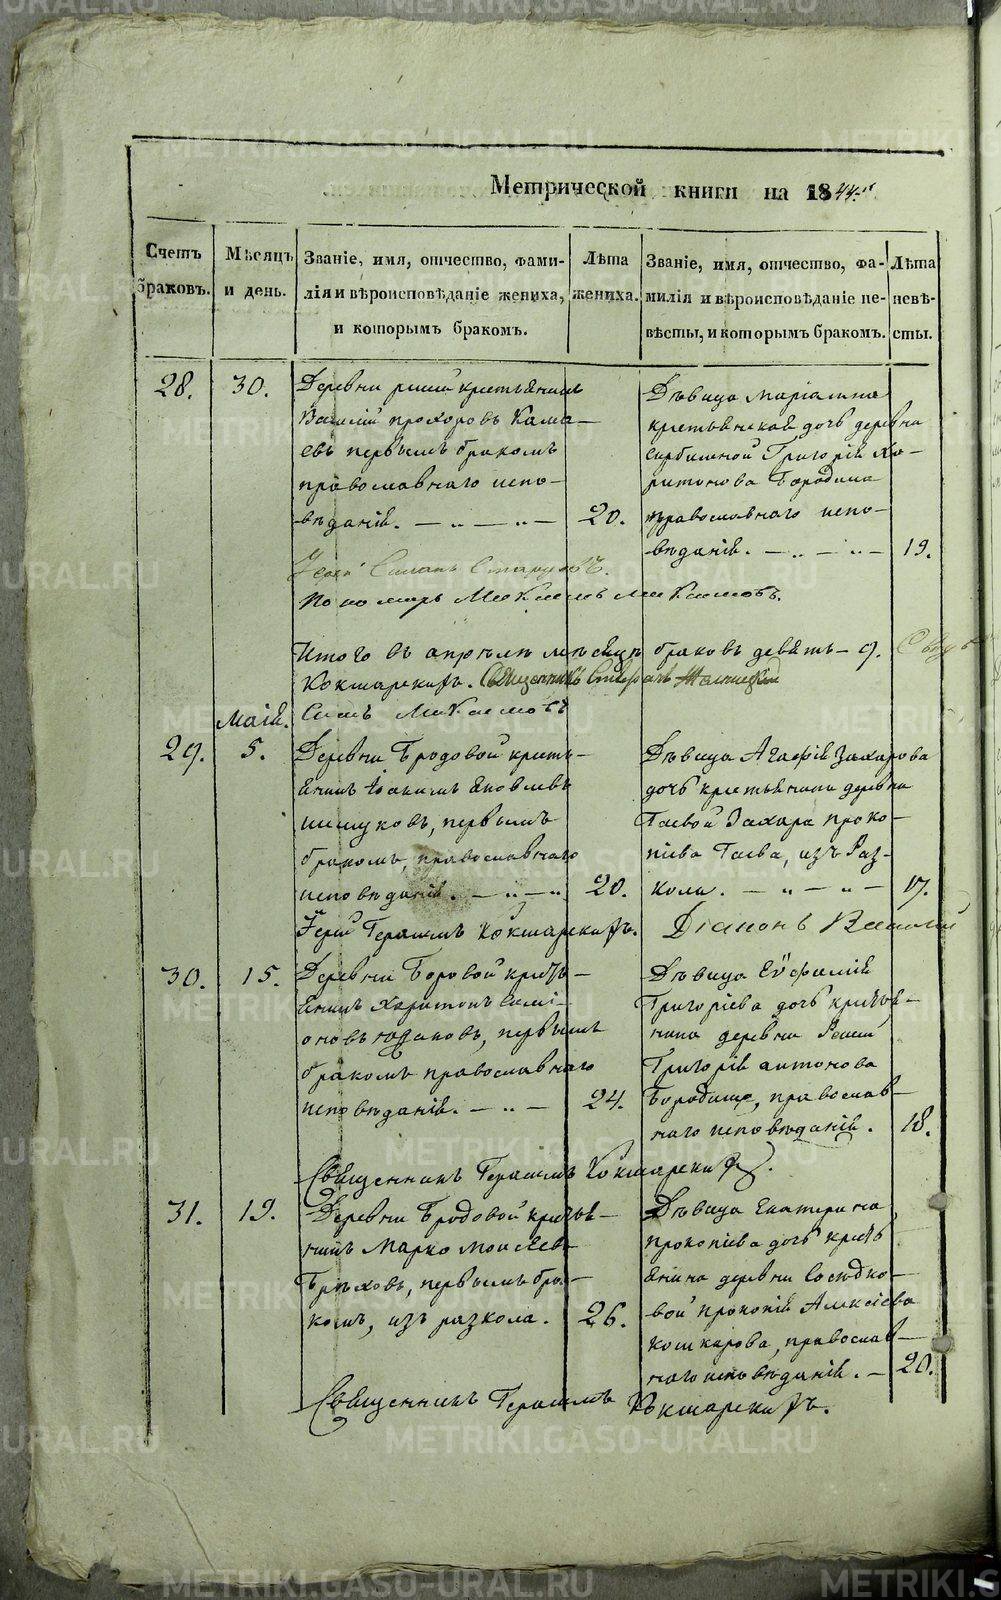 Метрической книги на 1844.
Счетъ браковъ.
Мѣсяцъ и день.
Званіе, имя, отчество, фами-
лія и вѣроисповѣданіе жениха,
и которымъ бракомъ.
Лѣта жениха.
Званіе, имя, отчество, фа-
милія и вѣроисповѣданіе не-
вѣсты, и которымъ бракомъ.
Лѣта невѣ-
сты.
28.
30.
Деревни крестьянинъ
Василій Прохоровъ Кама-
евъ первымъ бракомъ
православнаго испо-
вѣданія.
20.
Дѣвица Маріамна
крестьянская дочь деревни
Григорія Ха-
ритонова Бородина
православнаго испо-
вѣданія.
19.
Пономарь
Итого въ апрѣлѣ мѣсяцѣ браковъ девять – 9.
Кокшарскихъ. Священникъ
Маія.
29.
5.
Деревни Бродовой кресть-
янинъ Іоакимъ Яковлевъ
первымъ
бракомъ, православнаго
исповѣданія.
20.
Дѣвица Агафія Захарова
дочь крестьянина деревни
Гаевой Захара Проко-
піева Гаева, изъ Раз-
кола.
17.
Іерей Герасимъ Кокшарскихъ. Діаконъ Василій
30.
15.
Деревни Боровой кресть-
янинъ Харитонъ Симі-
оновъ Юдаковъ, первымъ
бракомъ православнаго
исповѣданія.
24.
Дѣвица Евфимія
Григоріева дочь крестья-
нина деревни
Григорія Антонова
Бородина, православ-
наго исповѣданія.
18.
Священникъ Герасимъ Кокшарскихъ.
31.
19.
Деревни Бродовой крестья-
нинъ Марко Моисеевъ
Грѣховъ, первымъ бра-
комъ, изъ разкола.
26.
Дѣвица Екатерина
Прокопіева дочь кресть-
янина деревни Сосѣдко-
вой Прокопія Алексіева
Кошкарова, православ-
наго исповѣданія.
20.
Священникъ Герасимъ Кокшарскихъ.
METRIKI.GASO-URAL.RU